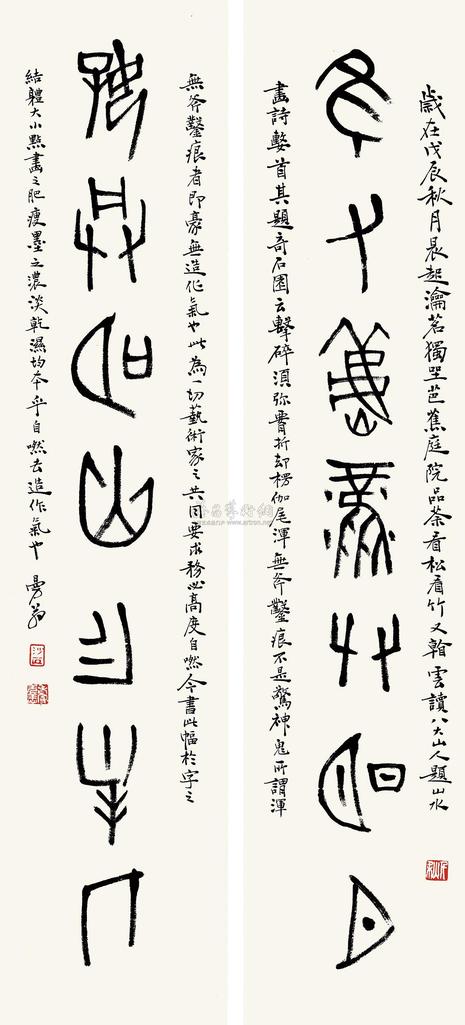 歲在戊辰秋月晨起瀹茗獨坐芭蕉庭院品茶看松看竹又翰雲讀八大山人題山水
萬 艸明月
畫詩數首其題奇石圖云擊碎須弥費折却楞伽尾渾無斧鑿痕不是驚神鬼所謂渾
無斧鑿痕者即豪無造作氣也此為一切藝術家之共同要求務必高度自然今書此幅於字之
明山
結體大小點畫之肥瘦墨之濃淡乾濕均本乎自然去造作氣也 曼翁